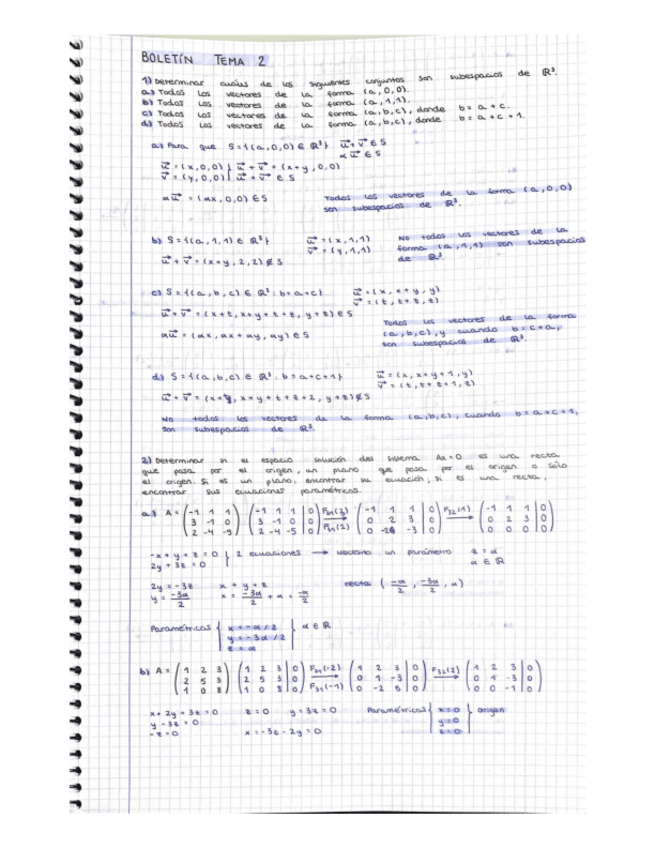 BOLETÍN TEMA 2
1) Determinar cuáles de los siguientes conjuntos son subespacios de ℝ³.
a) Todos los vectores de la forma (a,0,0).
b) Todos los vectores de la forma (a,1,1).
c) Todos los vectores de la forma (a,b,c), donde b=a+c.
d) Todos los vectores de la forma (a,b,c), donde b=a+c+1.
a) Para que S={(a,0,0) ∈ ℝ³} u⃗+v⃗ ∈ S
αu⃗ ∈ S
u⃗=(x,0,0) } u⃗+v⃗=(x+y,0,0)
v⃗=(y,0,0) } u⃗+v⃗ ∈ S
αu⃗ = (αx,0,0) ∈ S
Todos los vectores de la forma (a,0,0)
son subespacios de ℝ³.
b) S={(a,1,1) ∈ ℝ³}
u⃗=(x,1,1)
v⃗=(y,1,1)
u⃗+v⃗=(x+y,2,2) ∉ S
No todos los vectores de la
forma (a,1,1) son subespacios
de ℝ³.
c) S={(a,b,c) ∈ ℝ³: b=a+c}
u⃗=(x, x+y, y)
v⃗=(t, t+z, z)
u⃗+v⃗=(x+t, x+y+t+z, y+z) ∈ S
αu⃗=(αx, αx+αy, αy) ∈ S
Todos los vectores de la forma
(a,b,c), y cuando b=c+a,
son subespacios de ℝ³.
d) S={(a,b,c) ∈ ℝ³: b=a+c+1}
u⃗=(x, x+y+1, y)
v⃗=(t, t+z+1, z)
u⃗+v⃗= x+y+t+z+2, y+z) ∉ S
No todos los vectores de la forma (a,b,c), cuando b=a+c+1,
son subespacios de ℝ³.
2) Determinar si el espacio solución del sistema Ax=0 es una recta
que pasa por el origen, un plano que pasa por el origen o solo
el origen. Si es un plano, encontrar su ecuación, si es una recta,
encontrar sus ecuaciones paramétricas.
a) A = (-1 1 1 (-1 1 1 | 0 F₂₁(3) (-1 1 1 | 0 F₃₂(1) (-1 1 1 | 0
3 -1 0 3 -1 0 | 0 → 0 2 3 | 0 → 0 2 3 | 0
2 -4 -5) 2 -4 -5 | 0) F₃₁(2) 0 -2 -3 | 0) 0 0 0 | 0)
-x+y+z=0 } 2 ecuaciones → necesito un parámetro z=α
2y+3z=0 α∈ℝ
2y=-3z x=y+z
y=-3α/2 x=-3α/2+α=-α/2
recta (-α/2, -3α/2, α)
Paramétricas { x=-α/2
y=-3α/2
z=α
α∈ℝ
b) A = (1 2 3 (1 2 3 | 0 F₂₁(-2) (1 2 3 | 0 F₃₂(2) (1 2 3 | 0
2 5 3 2 5 3 | 0 → 0 1 -3 | 0 → 0 1 -3 | 0
1 0 8) 1 0 8 | 0) F₃₁(-1) 0 -2 5 | 0) 0 0 -1 | 0)
x+2y+3z=0 z=0 y=3z=0 Paramétricas { x=0
y-3z=0 y=0 } origen
-z=0 x=-3z-2y=0 z=0